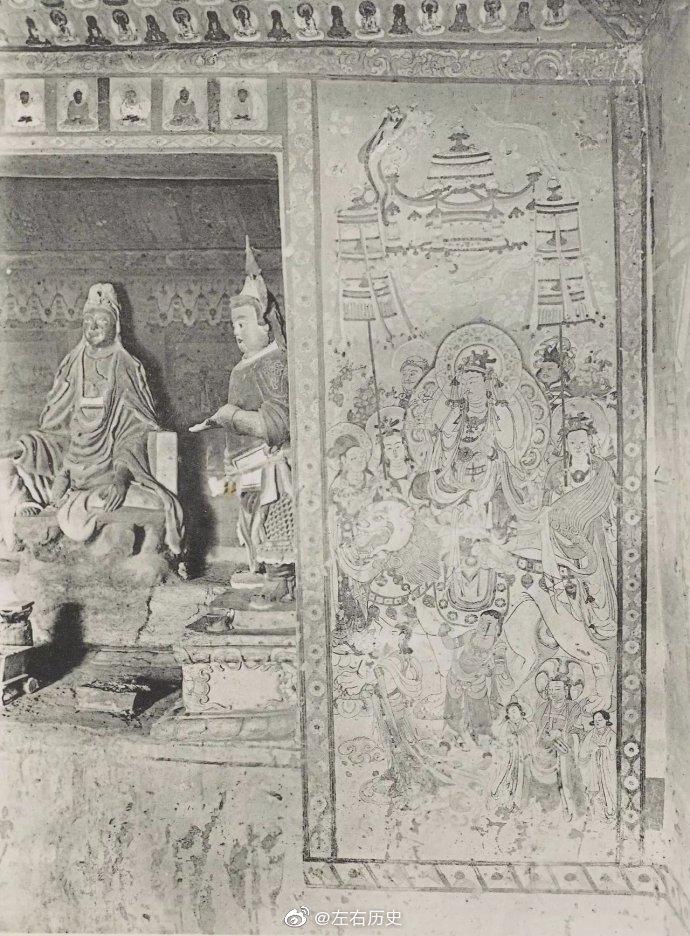 @左右历史